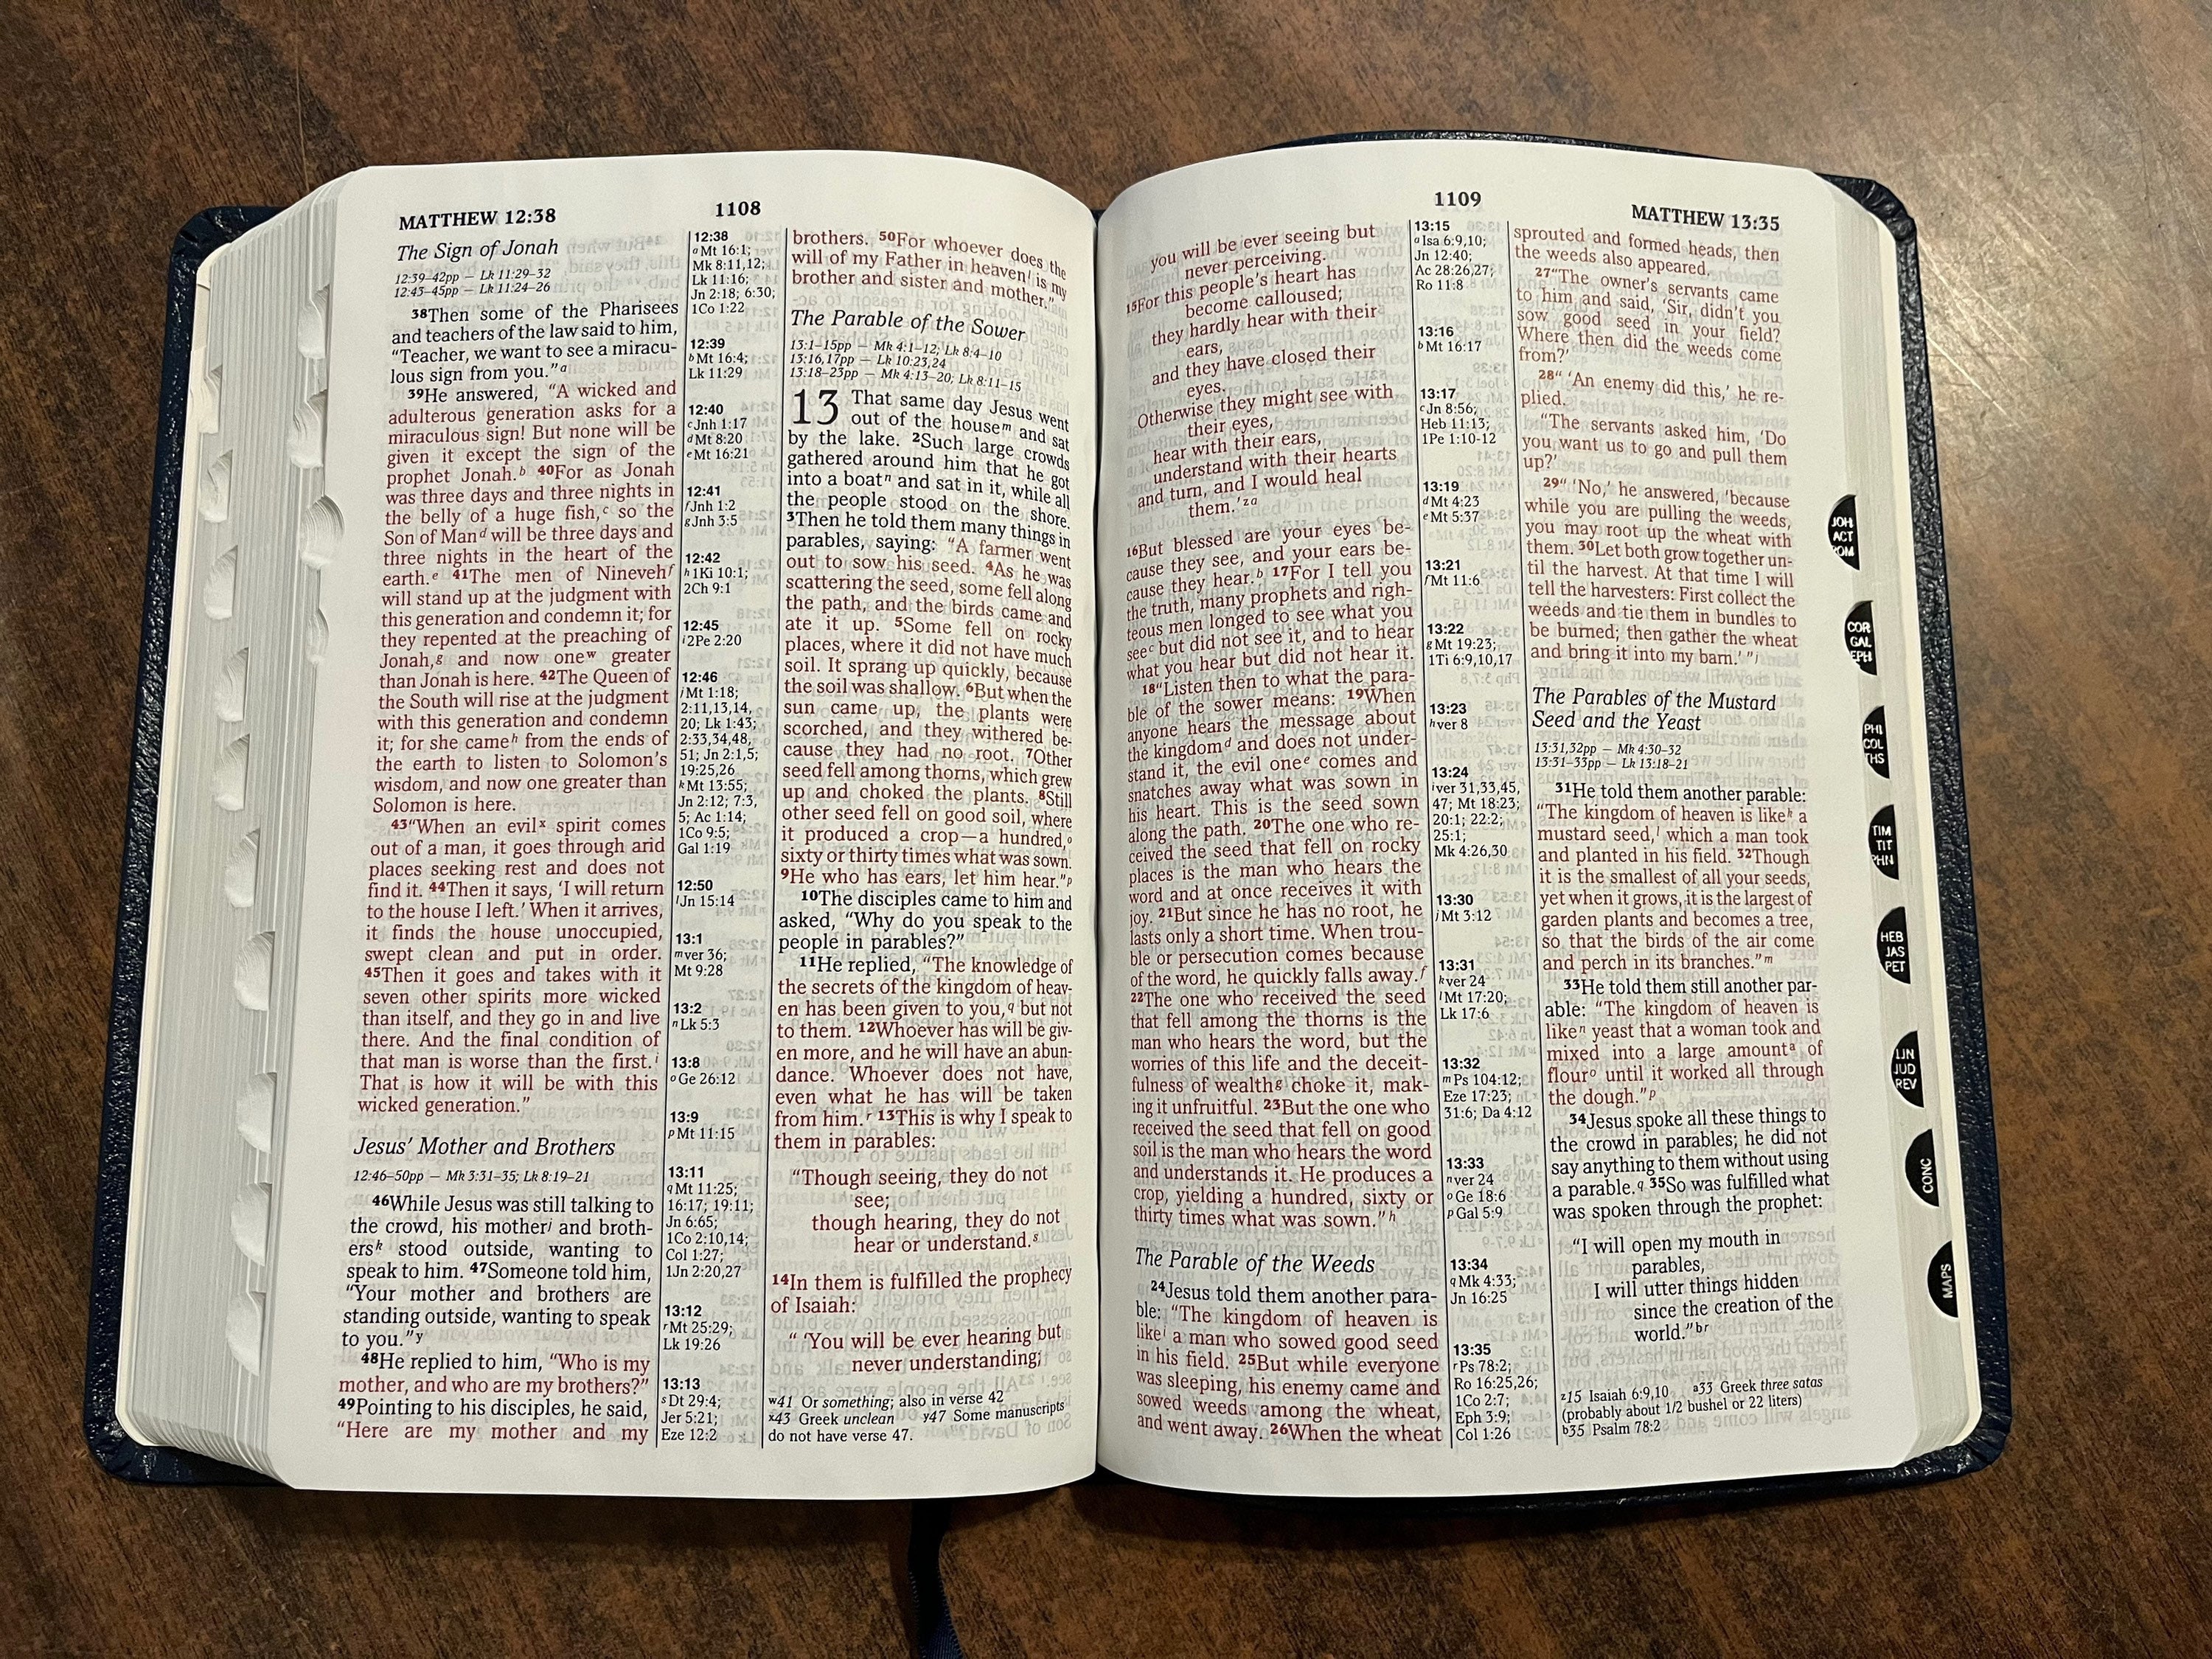 MATTHEW 12:38
1108
The Sign of Jonah
12:39–42pp — Lk 11:29–32
12:43–45pp — Lk 11:24–26
38Then some of the Pharisees
and teachers of the law said to him,
“Teacher, we want to see a miracu-
lous sign from you.”a
39He answered, “A wicked and
adulterous generation asks for a
miraculous sign! But none will be
given it except the sign of the
prophet Jonah.b 40For as Jonah
was three days and three nights in
the belly of a huge fish,c so the
Son of Mand will be three days and
three nights in the heart of the
earth.e 41The men of Ninevehf
will stand up at the judgment with
this generation and condemn it; for
they repented at the preaching of
Jonah,g and now onew greater
than Jonah is here. 42The Queen of
the South will rise at the judgment
with this generation and condemn
it; for she cameh from the ends of
the earth to listen to Solomon’s
wisdom, and now one greater than
Solomon is here.
43“When an evilx spirit comes
out of a man, it goes through arid
places seeking rest and does not
find it. 44Then it says, ‘I will return
to the house I left.’ When it arrives,
it finds the house unoccupied,
swept clean and put in order.
45Then it goes and takes with it
seven other spirits more wicked
than itself, and they go in and live
there. And the final condition of
that man is worse than the first.i
That is how it will be with this
wicked generation.”
Jesus’ Mother and Brothers
12:46–50pp — Mk 3:31–35; Lk 8:19–21
46While Jesus was still talking to
the crowd, his motherj and broth-
ersk stood outside, wanting to
speak to him. 47Someone told him,
“Your mother and brothers are
standing outside, wanting to speak
to you.”y
48He replied to him, “Who is my
mother, and who are my brothers?”
49Pointing to his disciples, he said,
“Here are my mother and my
12:38
a Mt 16:1;
Mk 8:11,12;
Lk 11:16;
Jn 2:18; 6:30;
1Co 1:22
12:39
b Mt 16:4;
Lk 11:29
12:40
c Jnh 1:17
d Mt 8:20
e Mt 16:21
12:41
f Jnh 1:2
g Jnh 3:5
12:42
h 1Ki 10:1;
2Ch 9:1
12:45
i 2Pe 2:20
12:46
j Mt 1:18;
2:11,13,14,
20; Lk 1:43;
2:33,34,48,
51; Jn 2:1,5;
19:25,26
k Mt 13:55;
Jn 2:12; 7:3,
5; Ac 1:14;
1Co 9:5;
Gal 1:19
12:50
l Jn 15:14
13:1
m ver 36;
Mt 9:28
13:2
n Lk 5:3
13:8
o Ge 26:12
13:9
p Mt 11:15
13:11
q Mt 11:25;
16:17; 19:11;
Jn 6:65;
1Co 2:10,14;
Col 1:27;
1Jn 2:20,27
13:12
r Mt 25:29;
Lk 19:26
13:13
s Dt 29:4;
Jer 5:21;
Eze 12:2
brothers. 50For whoever does the
will of my Father in heavenl is my
brother and sister and mother.”
The Parable of the Sower
13:1–15pp — Mk 4:1–12; Lk 8:4–10
13:16,17pp — Lk 10:23,24
13:18–23pp — Mk 4:13–20; Lk 8:11–15
13 That same day Jesus went
out of the housem and sat
by the lake. 2Such large crowds
gathered around him that he got
into a boatn and sat in it, while all
the people stood on the shore.
3Then he told them many things in
parables, saying: “A farmer went
out to sow his seed. 4As he was
scattering the seed, some fell along
the path, and the birds came and
ate it up. 5Some fell on rocky
places, where it did not have much
soil. It sprang up quickly, because
the soil was shallow. 6But when the
sun came up, the plants were
scorched, and they withered be-
cause they had no root. 7Other
seed fell among thorns, which grew
up and choked the plants. 8Still
other seed fell on good soil, where
it produced a crop—a hundred,o
sixty or thirty times what was sown.
9He who has ears, let him hear.”p
10The disciples came to him and
asked, “Why do you speak to the
people in parables?”
11He replied, “The knowledge of
the secrets of the kingdom of heav-
en has been given to you,q but not
to them. 12Whoever has will be giv-
en more, and he will have an abun-
dance. Whoever does not have,
even what he has will be taken
from him.r 13This is why I speak to
them in parables:
“Though seeing, they do not
see;
though hearing, they do not
hear or understand.s
14In them is fulfilled the prophecy
of Isaiah:
“ ‘You will be ever hearing but
never understanding;
w41 Or something; also in verse 42
x43 Greek unclean y47 Some manuscripts
do not have verse 47.
1109
MATTHEW 13:35
you will be ever seeing but
never perceiving.
15For this people’s heart has
become calloused;
they hardly hear with their
ears,
and they have closed their
eyes.
Otherwise they might see with
their eyes,
hear with their ears,
understand with their hearts
and turn, and I would heal
them.’za
16But blessed are your eyes be-
cause they see, and your ears be-
cause they hear.b 17For I tell you
the truth, many prophets and righ-
teous men longed to see what you
seec but did not see it, and to hear
what you hear but did not hear it.
18“Listen then to what the para-
ble of the sower means: 19When
anyone hears the message about
the kingdomd and does not under-
stand it, the evil onee comes and
snatches away what was sown in
his heart. This is the seed sown
along the path. 20The one who re-
ceived the seed that fell on rocky
places is the man who hears the
word and at once receives it with
joy. 21But since he has no root, he
lasts only a short time. When trou-
ble or persecution comes because
of the word, he quickly falls away.f
22The one who received the seed
that fell among the thorns is the
man who hears the word, but the
worries of this life and the deceit-
fulness of wealthg choke it, mak-
ing it unfruitful. 23But the one who
received the seed that fell on good
soil is the man who hears the word
and understands it. He produces a
crop, yielding a hundred, sixty or
thirty times what was sown.”h
The Parable of the Weeds
24Jesus told them another para-
ble: “The kingdom of heaven is
likei a man who sowed good seed
in his field. 25But while everyone
was sleeping, his enemy came and
sowed weeds among the wheat,
and went away. 26When the wheat
13:15
a Isa 6:9,10;
Jn 12:40;
Ac 28:26,27;
Ro 11:8
13:16
b Mt 16:17
13:17
c Jn 8:56;
Heb 11:13;
1Pe 1:10-12
13:19
d Mt 4:23
e Mt 5:37
13:21
f Mt 11:6
13:22
g Mt 19:23;
1Ti 6:9,10,17
13:23
h ver 8
13:24
i ver 31,33,45,
47; Mt 18:23;
20:1; 22:2;
25:1;
Mk 4:26,30
13:30
j Mt 3:12
13:31
k ver 24
l Mt 17:20;
Lk 17:6
13:32
m Ps 104:12;
Eze 17:23;
31:6; Da 4:12
13:33
n ver 24
o Ge 18:6
p Gal 5:9
13:34
q Mk 4:33;
Jn 16:25
13:35
r Ps 78:2;
Ro 16:25,26;
1Co 2:7;
Eph 3:9;
Col 1:26
sprouted and formed heads, then
the weeds also appeared.
27“The owner’s servants came
to him and said, ‘Sir, didn’t you
sow good seed in your field?
Where then did the weeds come
from?’
28“ ‘An enemy did this,’ he re-
plied.
“The servants asked him, ‘Do
you want us to go and pull them
up?’
29“ ‘No,’ he answered, ‘because
while you are pulling the weeds,
you may root up the wheat with
them. 30Let both grow together un-
til the harvest. At that time I will
tell the harvesters: First collect the
weeds and tie them in bundles to
be burned; then gather the wheat
and bring it into my barn.’ ”j
The Parables of the Mustard
Seed and the Yeast
13:31,32pp — Mk 4:30–32
13:31–33pp — Lk 13:18–21
31He told them another parable:
“The kingdom of heaven is likek a
mustard seed,l which a man took
and planted in his field. 32Though
it is the smallest of all your seeds,
yet when it grows, it is the largest of
garden plants and becomes a tree,
so that the birds of the air come
and perch in its branches.”m
33He told them still another par-
able: “The kingdom of heaven is
liken yeast that a woman took and
mixed into a large amounta of
flouro until it worked all through
the dough.”p
34Jesus spoke all these things to
the crowd in parables; he did not
say anything to them without using
a parable.q 35So was fulfilled what
was spoken through the prophet:
“I will open my mouth in
parables,
I will utter things hidden
since the creation of the
world.”br
z15 Isaiah 6:9,10 a33 Greek three satas
(probably about 1/2 bushel or 22 liters)
b35 Psalm 78:2
JOH
ACT
ROM
COR
GAL
EPH
PHI
COL
THS
TIM
TIT
PHN
HEB
JAS
PET
IJN
JUD
REV
CONC
MAPS